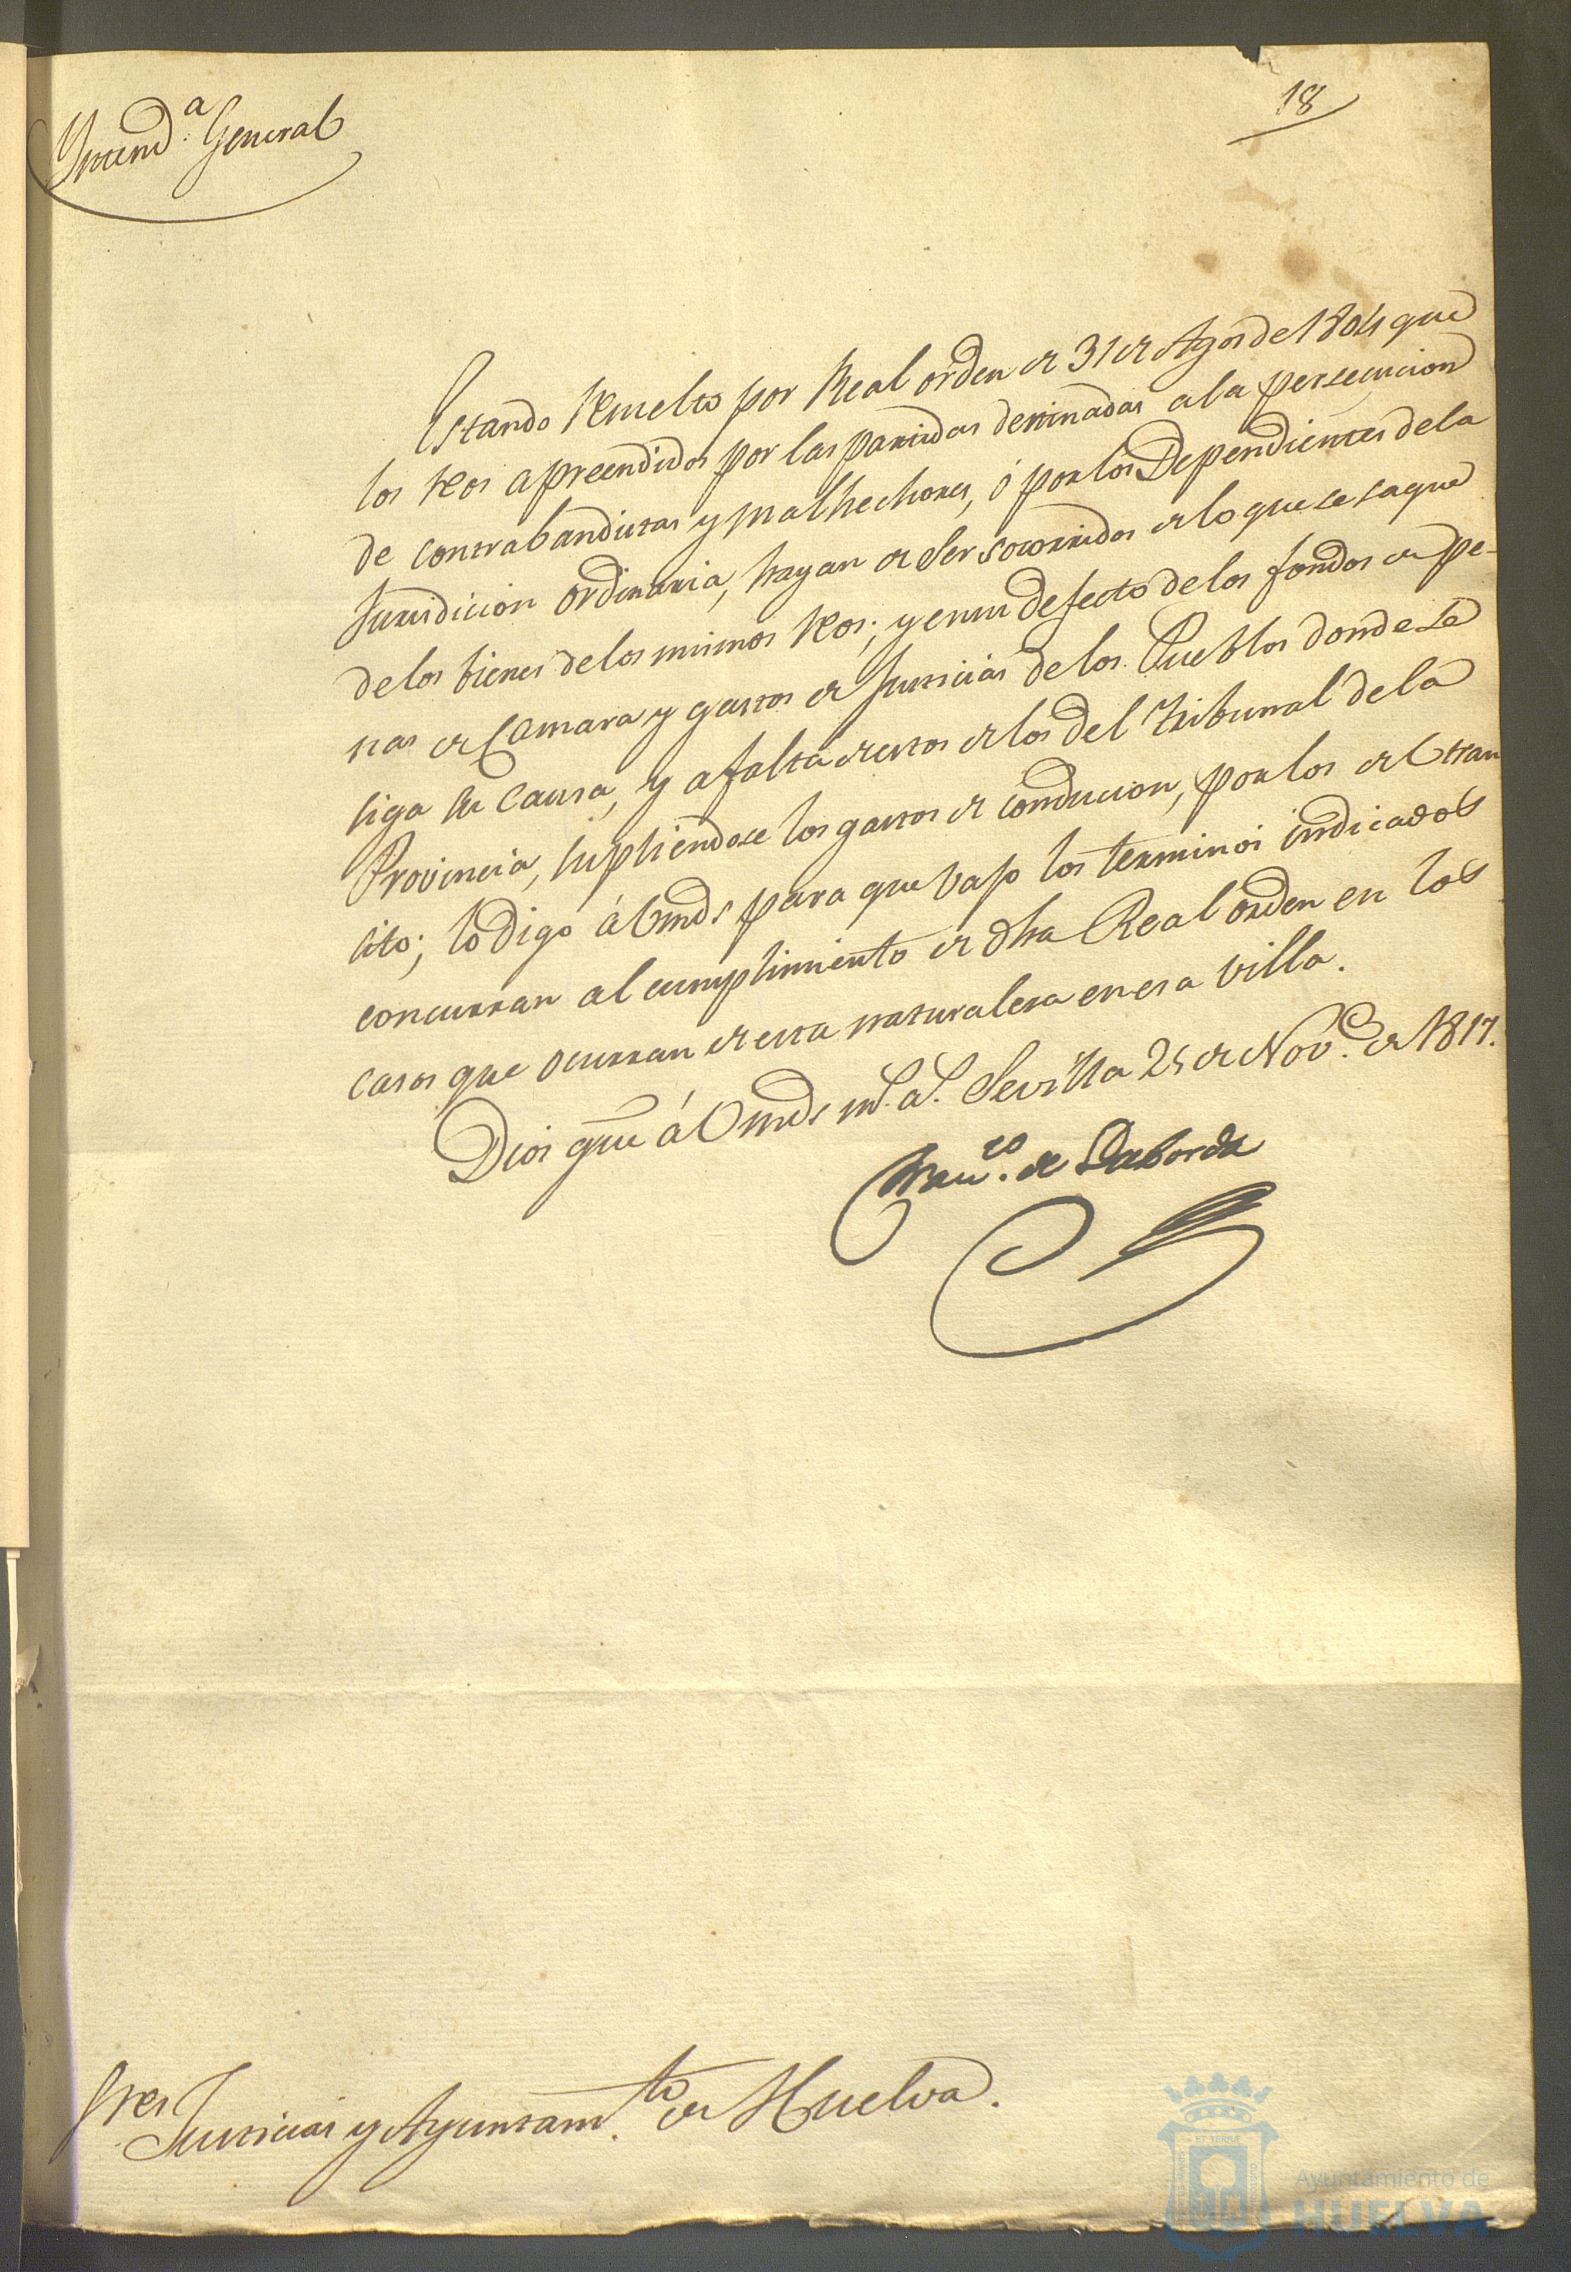 Yntend.ª General
18
Estando resuelto por Real orden de 31 de Agos de 1804 que
los reos apreendidos por las partidas destinadas a la persecucion
de contrabandistas y malhechores, ó por los Dependientes de la
Jurisdicion ordinaria, hayan de ser socorridos de lo que se saque
de los bienes de los mismos reos; y en su defecto de los fondos de pe-
nas de Camara y gastos de Justicias de los Pueblos donde se
siga su causa, y a falta de estos de los del Tribunal de la
Provincia, supliendose los gastos de conducion, por los de el tran
sito; lo digo á Vmds para que bajo los terminos indicados
concurran al cumplimiento de dha Real orden en los
casos que ocurran de esta naturaleza en esa villa.
Dios gue á Vmds m.s a.s Sevilla 25 de Nov.e de 1817.
Fran.co de Laborda
Sres Justicias y Ayuntam.to de Huelva.
Ayuntamiento de
HUELVA